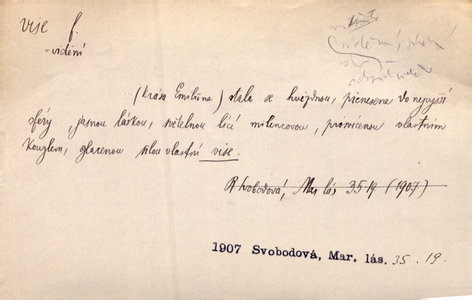 vise f.
-vidění
(Krása Emiliina) stála se hvězdnou, přenesena do nejvyšší
sféry, jasnou láskou, světelnou lící milencovou, prosvícenou vlastním
kouzlem, zlacenou silou vlastní vise.
R Svobodová, Mar lás 35 19 (1907)
1907 Svobodová, Mar. lás. 35. 19.